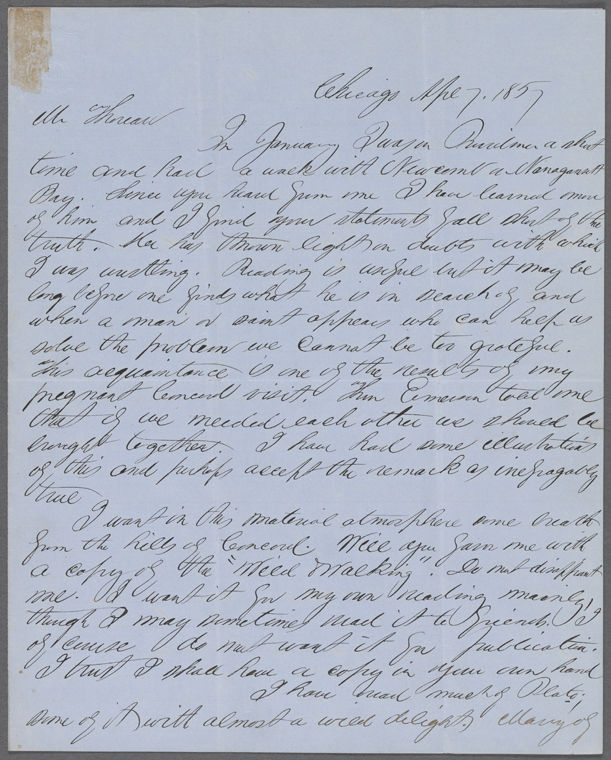 Chicago Apl 7. 1857
Mr Thoreau
In January I was in Providence a short
time and had a walk with Newcomb on Naragansett
Bay. Since you heard from me I have learned more
of him and I find your statements fall short of the
truth. He has thrown light on doubts with which
I was wrestling. Reading is useful but it may be
long before one finds what he is in search of and
when a man or saint appears who can help us
solve the problem we cannot be too grateful.
This acquaintance is one of the results of my
pregnant Concord visit. Then Emerson told me
that if we needed each other we should be
brought together. I have had some illustrations
of this and perhaps accept the remark as irrefragably
true
I want in this material atmosphere some breath
from the hills of Concord. Will you favor me with
a copy of the "Wild Walking". Do not disappoint
me. I want it for my own reading mainly
though I may sometime read it to friends. I
of course do not want it for publication.
I trust I shall have a copy in your own hand
I have read much of Plato,
some of it with almost a wild delight. Many of